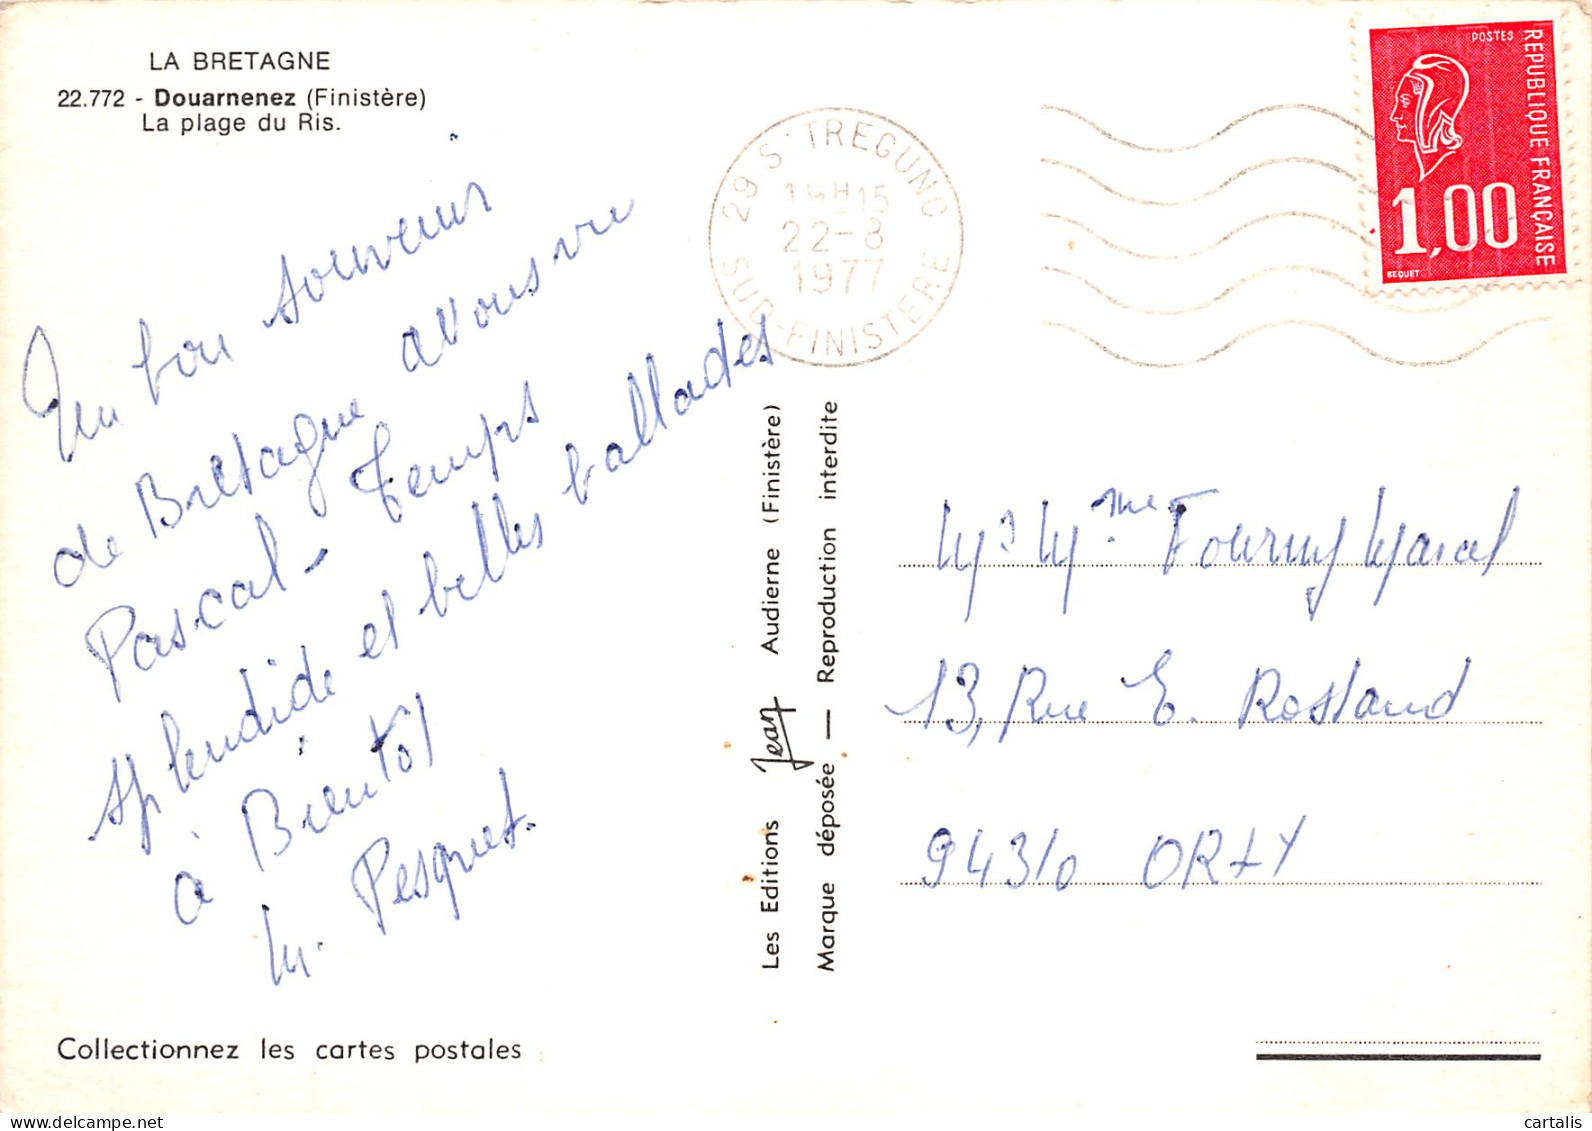 LA BRETAGNE
22.772 - Douarnenez (Finistère)
La plage du Ris.
Un bon souvenir
de Bretagne avons vu
Pascal - temps
splendide et belles ballades
à Bientôt
M. Pesquet.
Collectionnez les cartes postales
29 S TREGUNC
14H15
22-8
1977
SUD-FINISTERE
POSTES
REPUBLIQUE FRANÇAISE
1,00
BEQUET
Les Editions Jean Audierne (Finistère)
Marque déposée — Reproduction interdite
Mr Mme Fourny Marcel
13, Rue E. Rostand
94310 ORLY
www.delcampe.net
cartalis